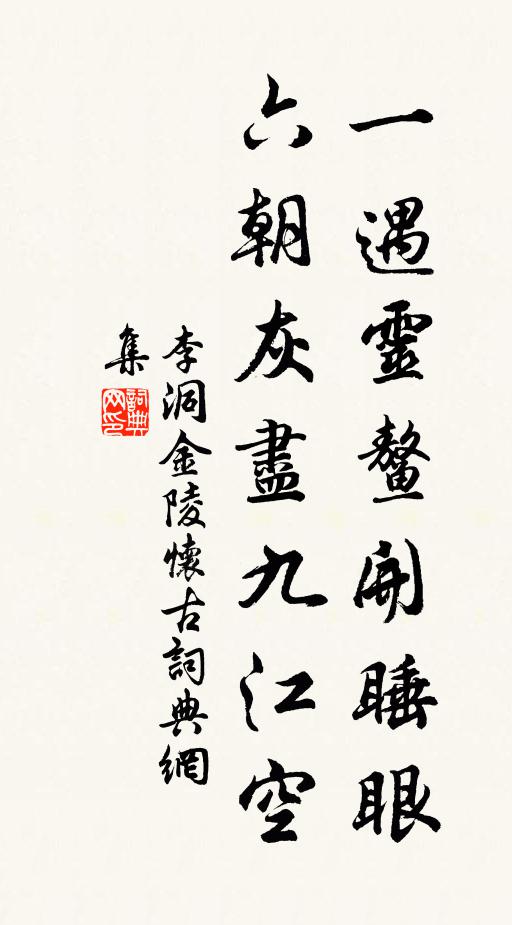 一遇靈鼇開睡眼
六朝灰盡九江空
李洞金陵懷古詞典網
集
詞典
网印